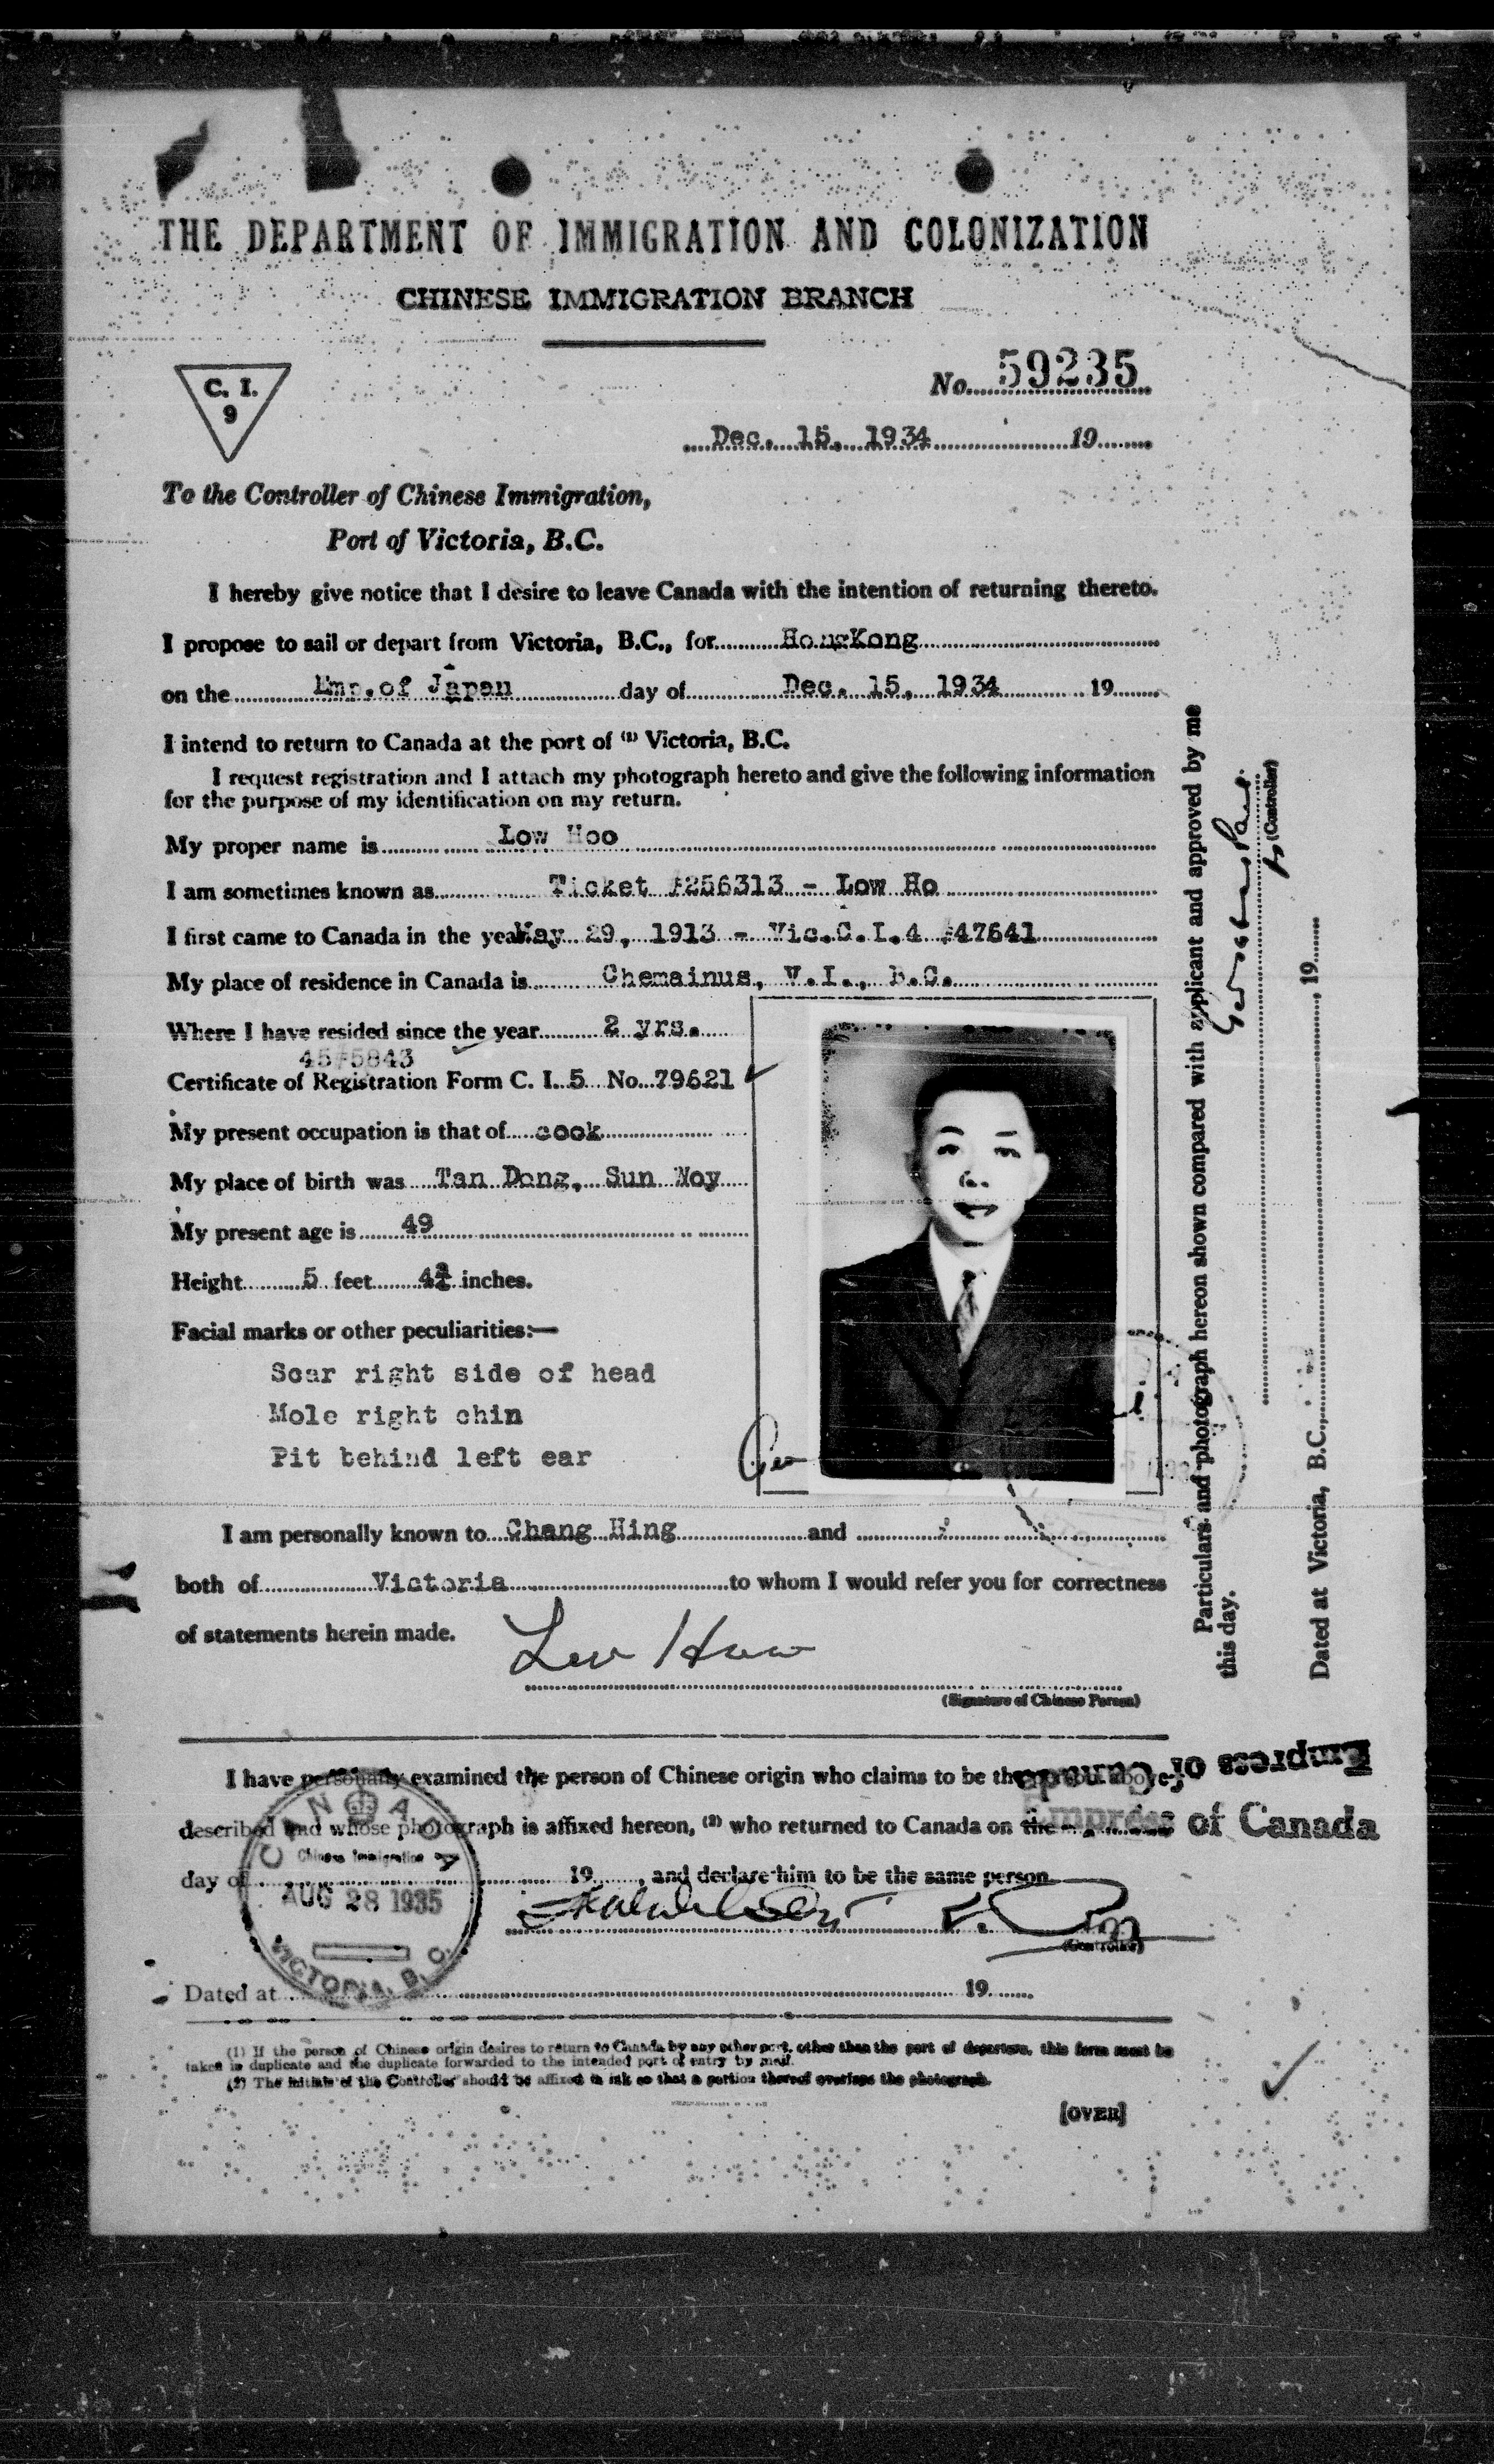 THE DEPARTMENT OF IMMIGRATION AND COLONIZATION
CHINESE IMMIGRATION BRANCH
C. I.
9
No. 59235
Dec. 15, 1934 19
To the Controller of Chinese Immigration,
Port of Victoria, B.C.
I hereby give notice that I desire to leave Canada with the intention of returning thereto.
I propose to sail or depart from Victoria, B.C., for HongKong
on the Emp. of Japan day of Dec. 15, 1934 19
I intend to return to Canada at the port of (1) Victoria, B.C.
I request registration and I attach my photograph hereto and give the following information
for the purpose of my identification on my return.
My proper name is Low Hoo
I am sometimes known as Ticket #256313 - Low Ho
I first came to Canada in the year May 29, 1913 - Vic.C.I.4 #47641
My place of residence in Canada is Chemainus, V.I., B.C.
Where I have resided since the year 2 yrs.
45#5843
Certificate of Registration Form C. I. 5 No. 79621
My present occupation is that of cook
My place of birth was Tan Dong, Sun Woy
My present age is 49
Height 5 feet 4 inches.
Facial marks or other peculiarities:—
Scar right side of head
Mole right chin
Pit behind left ear
I am personally known to Chang Hing and
both of Victoria to whom I would refer you for correctness
of statements herein made.
(Signature of Chinese Person)
Particulars and photograph hereon shown compared with applicant and approved by me
this day.
(Controller)
Dated at Victoria, B.C., 19
I have personally examined the person of Chinese origin who claims to be the person above
Empress of Canada
described and whose photograph is affixed hereon, (2) who returned to Canada on the
Empress of Canada
day of 19, and declare him to be the same person
CANADA
Chinese Immigration
AUG 28 1935
VICTORIA, B. C.
(Controller)
Dated at 19
(1) If the person of Chinese origin desires to return to Canada by any other port, other than the port of departure, this form must be
taken in duplicate and the duplicate forwarded to the intended port of entry by mail.
(2) The initials of the Controller should be affixed in ink so that a portion thereof overlaps the photograph.
[OVER]